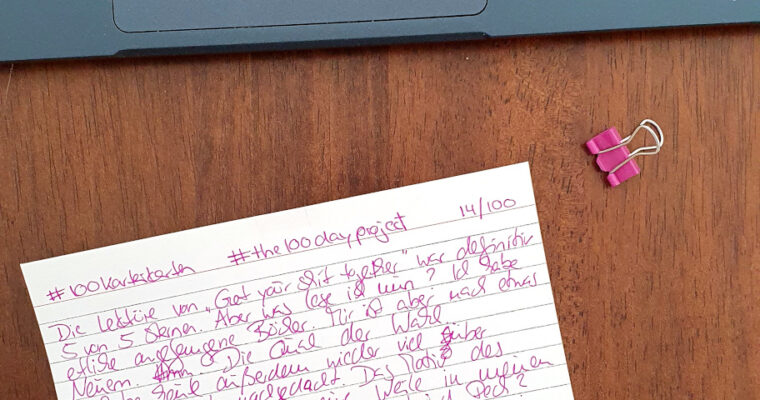 #100karteikarten #the100dayproject 14/100
Die Lektüre von "Get your shit together" war definitiv
5 von 5 Sternen. Aber was lese ich nun? Ich habe
etliche angefangene Bücher. Mir ist aber nach etwas
Neuem. Die Qual der Wahl
heute außerdem wieder viel über
nachgedacht. Das Motiv des
Werk in meinen